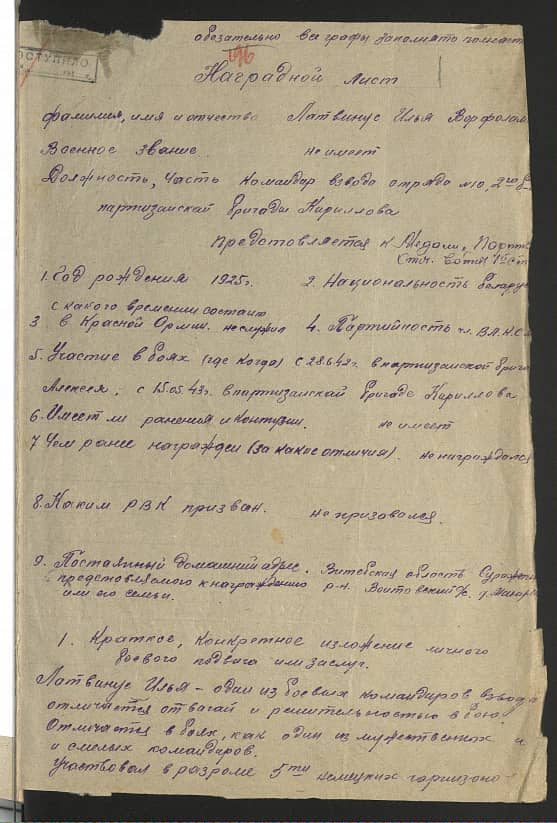 обезательно все графы заполнять
196
ПОСТУПИЛО
Наградной лист
фамилия, имя и отчество Латвинус Илья Ворфолам
Военное звание не имеет
Должность, часть командир взвода отряда №10, 2го
партизанской бригады Кириллова
предстовляется к Медали, Парти
Отеч. войны
1. Год рождения 1925г. 2. Национальность белару
с какого времени состоит
3. в Красной Армии. не служил 4. Партийность
5. Участие в боях (где когда) с 28.6.42г. в партизанской бриг
Алексея, с 15.05.43г. в партизанской бригаде Кириллова
6. Имеет ли ранения и контузии. не имеет
7. Чем ранее награжден (за какое отличия). не награждался
8. Каким РВК призван. не призовался.
9. Постаянный домашний адрес. Витебская область Сураж
предстовляемого к награждению р-н. Войтовский
или его семьи.
1. Краткое, конкретное изложение личного
боевого подвига или заслуг.
Латвинус Илья – один из боевых командиров взвода
отличается отвагай и решительностью в бою.
Отличается в боях, как один из мужественных
и смелых командиров.
Участвовал в разгроме 5ти немецких гарнизоно